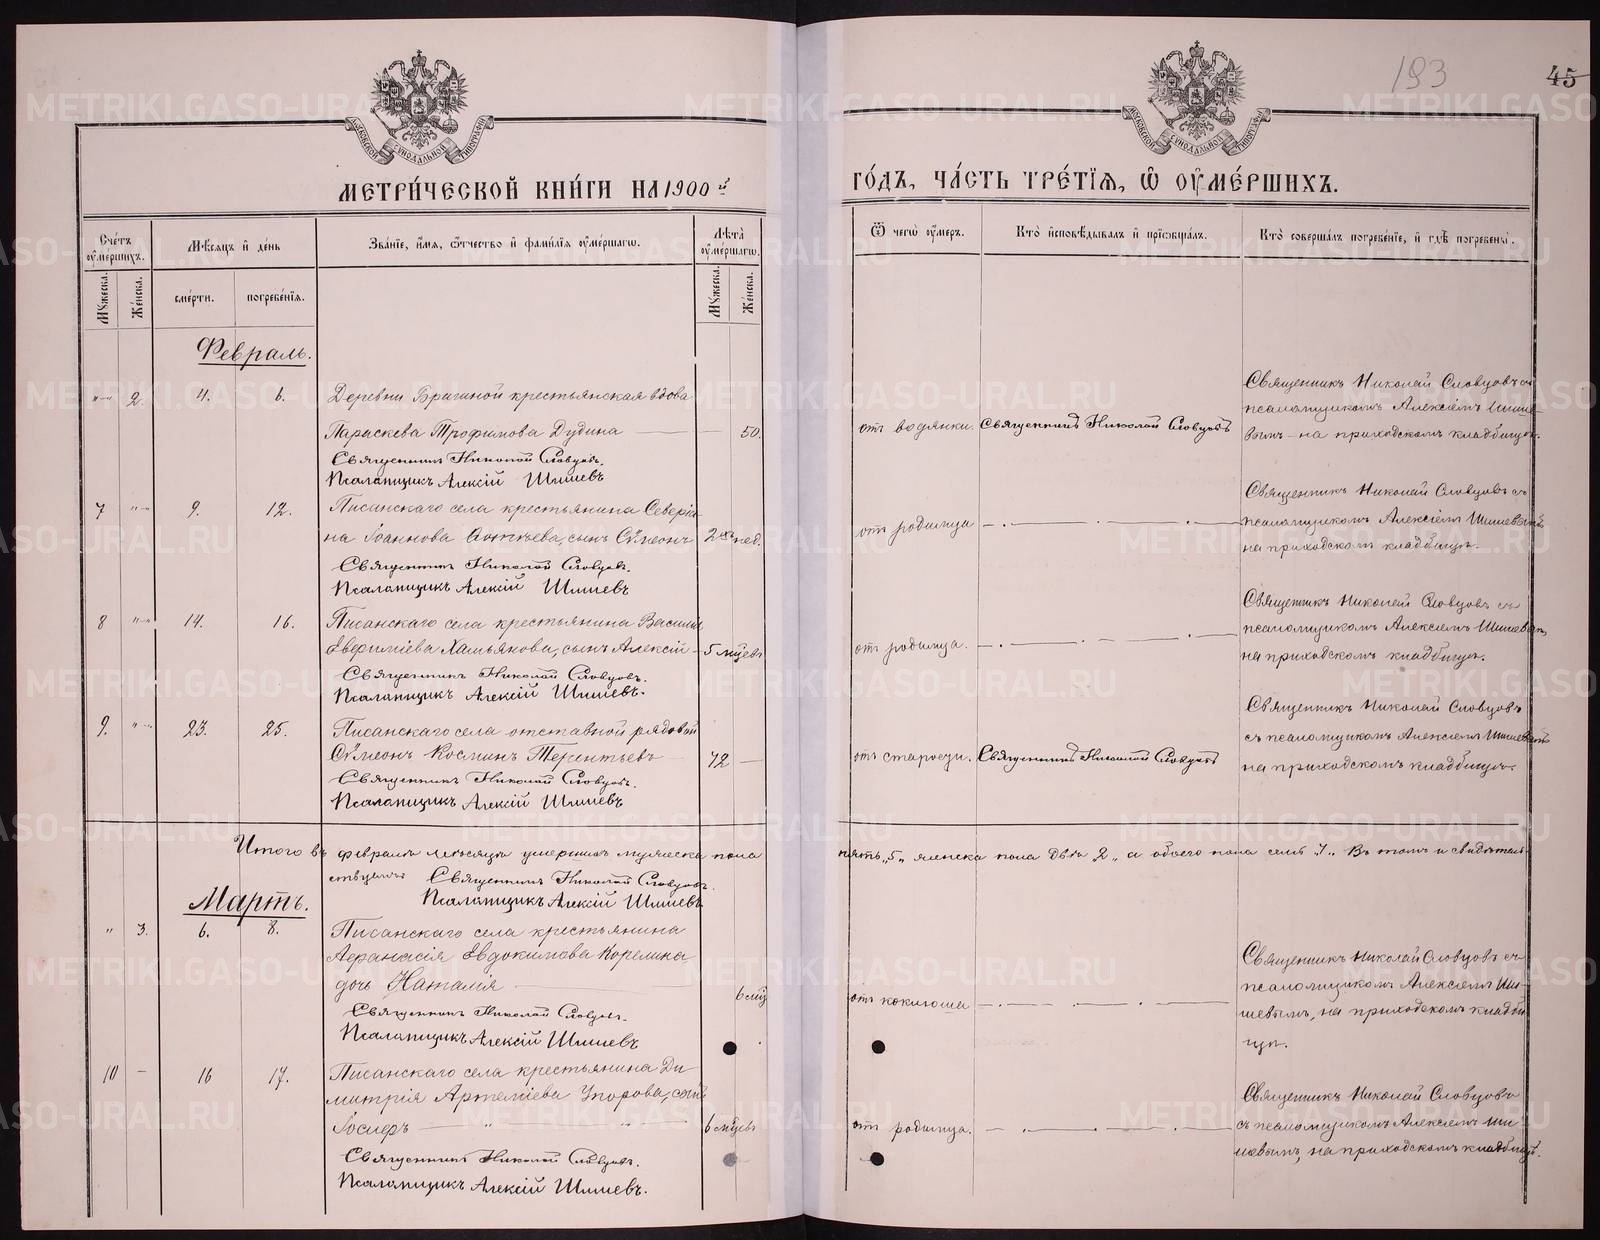 193
45
МЕТРИ́ЧЕСКОЙ КНИ́ГИ НА 1900 й
ГО́ДЪ, ЧА́СТЬ ТРЕ́ТІѦ, Ѽ ОУМЕ́РШИХЪ.
МОСКОВСКОЙ СѴНОДАЛЬНОЙ ТИПОГРАФІИ
МОСКОВСКОЙ СѴНОДАЛЬНОЙ ТИПОГРАФІИ
Сче́тъ оуме́ршихъ.
Мѣ́сяцъ и де́нь
Зва́ніе, и́мя, ѻ́тчество и фами́лія оуме́ршагѡ.
Лѣ́та оуме́ршагѡ.
Ѿ чегѡ̀ оу́меръ.
Кто̀ и҆сповѣ́дывалъ и҆ прїѡбща́лъ.
Кто̀ соверша́лъ погребе́нїе, и҆ гдѣ̀ погребены̀.
Мꙋжеска.
Же́нска.
сме́рти.
погребе́нїя.
Мꙋжеска.
Же́нска.
Февраль.
"—" 2. 4. 6. Деревни Брагиной крестьянская вдова
Параскева Трофимова Дудина — — 50.
Священникъ Николай Словцовъ.
Псаломщикъ Алексій Шишевъ
от водянки. Священникъ Николай Словцовъ
Священникъ Николай Словцовъ съ
псаломщикомъ Алексіемъ Шише-
вымъ — на приходскомъ кладбищѣ.
7 "—" 9. 12. Писанскаго села крестьянина Северіа-
на Іоаннова сынъ Сѵмеонъ 2хъ нед.
Священникъ Николай Словцовъ.
Псаломщикъ Алексій Шишевъ
от родимца
Священникъ Николай Словцовъ съ
псаломщикомъ Алексіемъ Шишевымъ
на приходскомъ кладбищѣ.
8 "—" 14. 16. Писанскаго села крестьянина Василія
Евфиміева Хальякова, сынъ Алексій — 5 мцевъ
Священникъ Николай Словцовъ.
Псаломщикъ Алексій Шишевъ.
от родимца.
Священникъ Николай Словцовъ съ
псаломщикомъ Алексіемъ Шишевымъ,
на приходскомъ кладбищѣ.
9. "—" 23. 25. Писанскаго села отставной рядовой
Сѵмеонъ Косминъ Терентьевъ — 72 —
Священникъ Николай Словцовъ.
Псаломщикъ Алексій Шишевъ
от старости. Священникъ Николай Словцовъ
Священникъ Николай Словцовъ
съ псаломщикомъ Алексіемъ Шишевымъ
на приходскомъ кладбищѣ.
Итого въ февралѣ мѣсяцѣ умершихъ мужеска пола
пять „5„ женска пола двѣ 2„ а обоего пола семь „7„ Въ томъ и свидѣтель-
ствуемъ Священникъ Николай Словцовъ.
Псаломщикъ Алексій Шишевъ
Мартъ.
" 3. 6. 8. Писанскаго села крестьянина
Аѳанасія Евдокимова Корелина
дочь Наталія 6 мц
Священникъ Николай Словцовъ.
Псаломщикъ Алексій Шишевъ
от коклюша
Священникъ Николай Словцовъ съ
псаломщикомъ Алексіемъ Ши-
шевымъ, на приходскомъ кладби-
щѣ.
10 — 16 17. Писанскаго села крестьянина Ди-
митрія Артеміева Упорова, сынъ
Іосифъ — " — " — 6 мцевъ
Священникъ Николай Словцовъ.
Псаломщикъ Алексій Шишевъ.
от родимца.
Священникъ Николай Словцовъ
съ псаломщикомъ Алексіемъ Ши-
шевымъ, на приходскомъ кладбищѣ.
METRIKI.GASO-URAL.RU